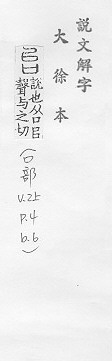 說文解字
大徐本
說也从口㠯
聲与之切
(口部
v.2上
p.4
b.6)